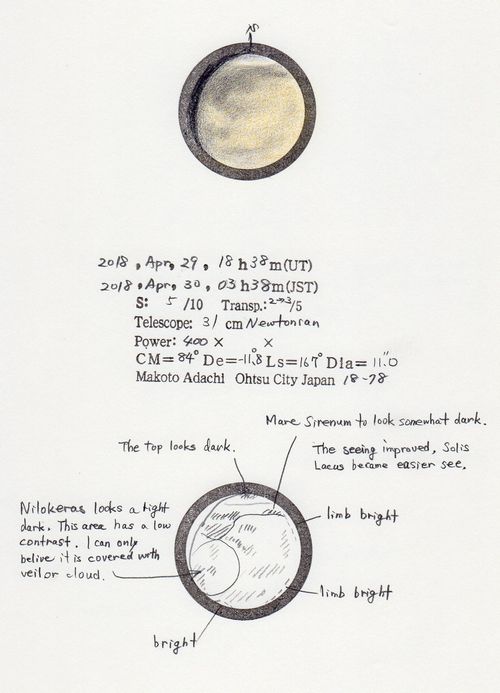 S
2018, Apr, 29, 18 h 38 m (UT)
2018, Apr, 30, 03 h 38 m (JST)
S: 5 /10 Transp.: 2~3/5
Telescope: 31 cm Newtonian
Power: 400 × ×
CM= 84° De=-11.8° Ls=167° Dia= 11.0"
Makoto Adachi Ohtsu City Japan 18-78
Mare Sirenum to look somewhat dark.
The top looks dark.
The seeing improved, Solis
Lacus became easier see.
Nilokeras looks a light
dark. This area has a low
contrast. I can only
belive it is covered with
veil or cloud.
limb bright
limb bright
bright